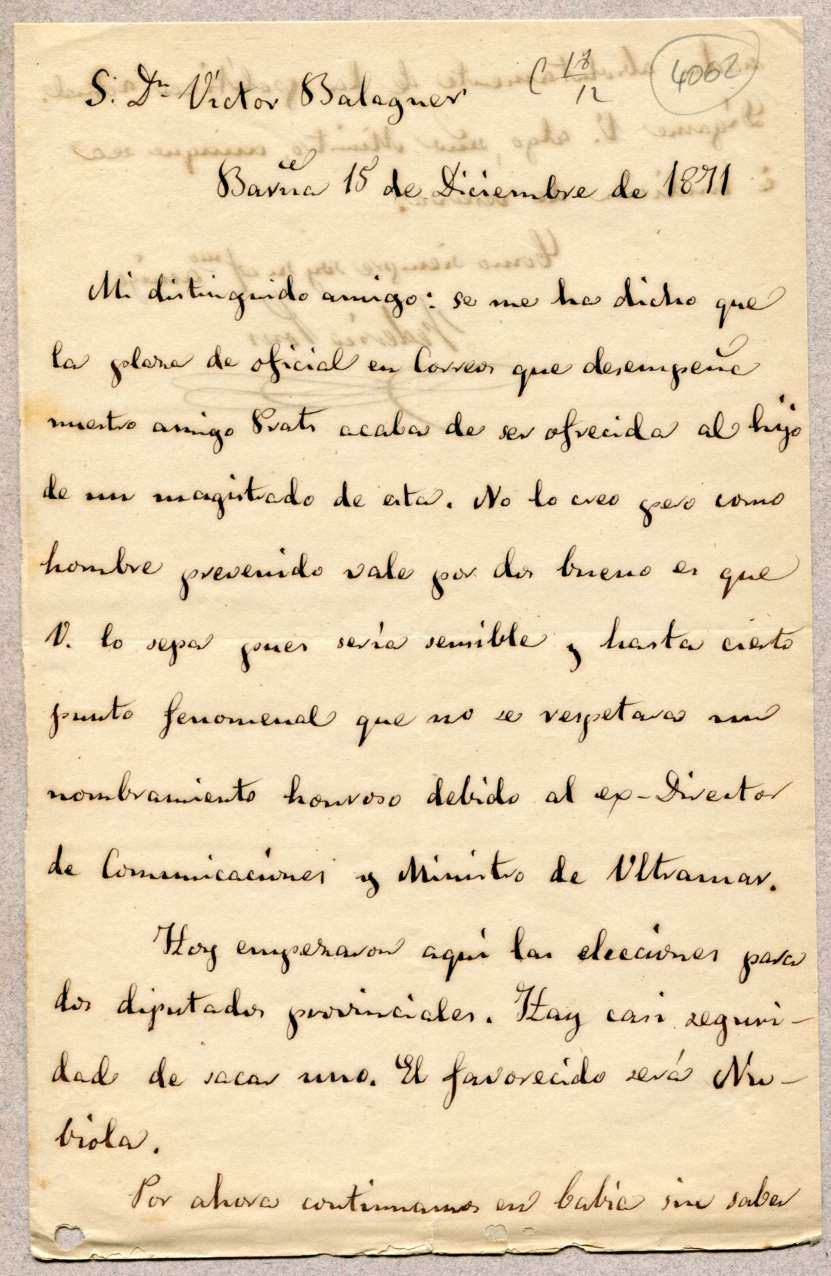 C 18/12
4062
S. Dn Victor Balaguer
Barna 15 de Diciembre de 1871
Mi distinguido amigo: se me ha dicho que
la plaza de oficial en Correos que desempeña
nuestro amigo Prats acaba de ser ofrecida al hijo
de un magistrado de esta. No lo creo pero como
hombre prevenido vale por dos bueno es que
V. lo sepa pues sería sensible y hasta cierto
punto fenomenal que no se respetara un
nombramiento honroso debido al ex-Director
de Comunicaciones y Ministro de Ultramar.
Hoy empezaron aquí las elecciones para
dos diputados provinciales. Hay casi seguri-
dad de sacar uno. El favorecido será Nu-
biola.
Por ahora continuamos en babia sin saber